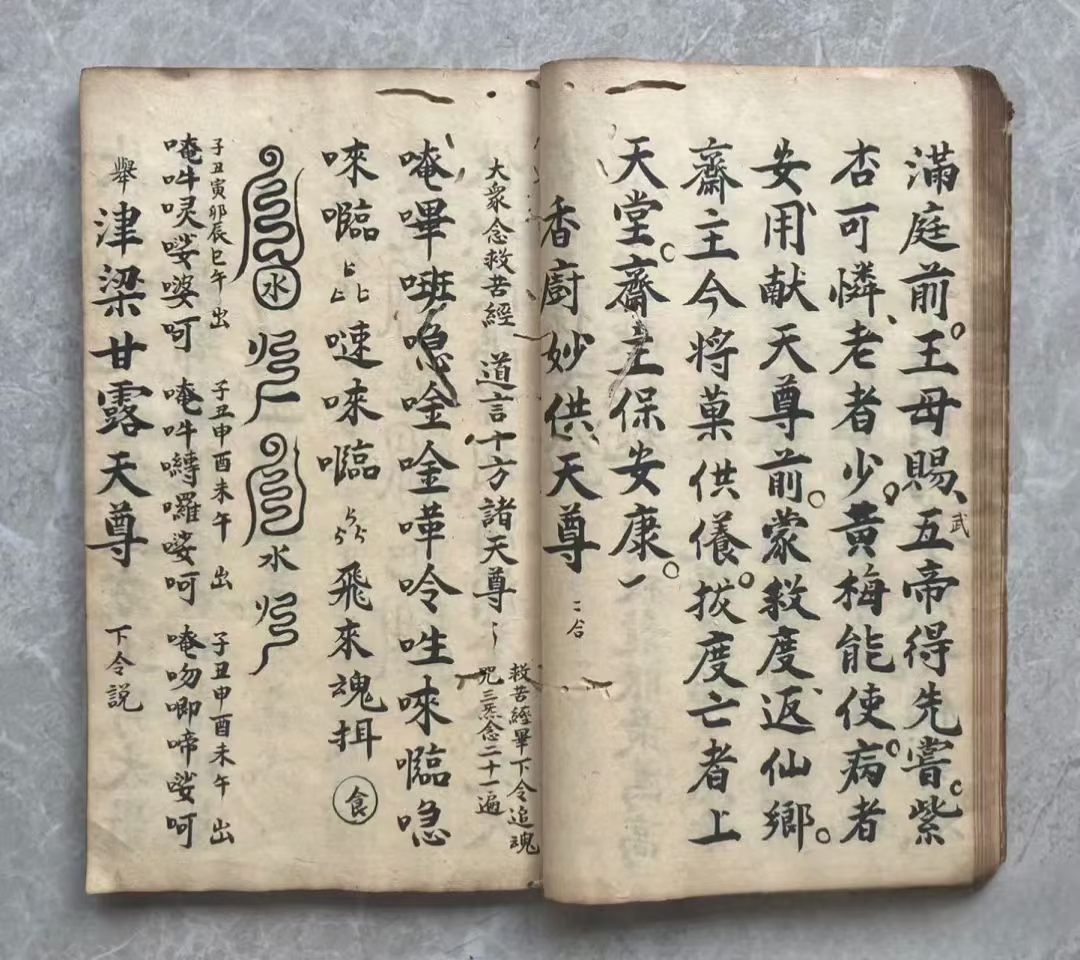 滿庭前。王母賜、五帝得先嘗。紫
武
杏可憐、老者少、黃梅能使。病者
安用献天尊前。蒙救度返仙鄉。
齋主今將菓供儀。拔度亡者上
天堂。齋主保安康。一
香廚妙供天尊 二合
大衆念救苦經 道言十方諸天尊
救苦經畢下令追魂
咒三炁念二十一遍
唵嗶㘊噫唫唫嘩呤㕽唻㘋噫
唻㘋 噠唻㘋 飛來魂揖 食
水 水
子丑寅卯辰巳午 出 子丑申酉未午 出 子丑申酉未午 出
唵吽㖫㗿婆呵 唵吽囀囉㗿呵 唵吻唧啼㗿呵
舉 津梁甘露天尊 下令説